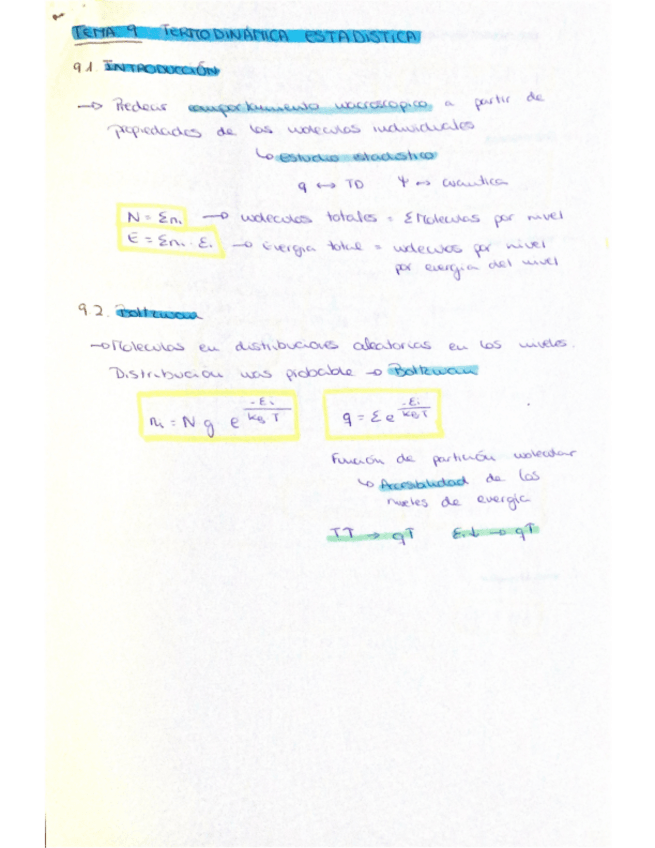 TEMA 9 TERMODINÁMICA ESTADISTICA
9.1. INTRODUCCIÓN
→ Predecir comportamiento macroscopico a partir de
propiedades de las moleculas individuales
↳ Estudio estadistico
q ↔ TD ψ ↔ cuantica
N = Σni → moleculas totales = Σ Moleculas por nivel
E = Σni · Ei → Energia total = moleculas por nivel
por energia del nivel
9.2. Boltzman
→ Moleculas en distribuciones aleatorias en los niveles.
Distribución mas probable → Boltzman
ni = N g e^(-Ei / kB T) q = Σ e^(-Ei / kB T)
Función de partición molecular
↳ Accesibilidad de los
niveles de energia
T↑ → q↑ Ei↓ → q↑